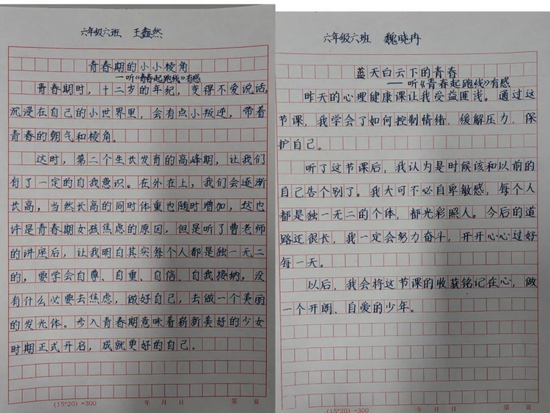 六年级六班 王鑫然
青春期的小小棱角
——听《青春起跑线》有感
青春期时，十二岁的年纪，变得不爱说话，
沉浸在自己的小世界里，会有点小叛逆，带着
青春的朝气和棱角。
这时，第二个生长发育的高峰期，让我们
有了一定的自我意识。在外在上，我们会逐渐
长高，当然长高的同时体重也随时增加，这也
许是青春期女孩焦虑的原因，但是听了曹老师
的讲座后，让我明白其实每个人都是独一无二
的，要学会自尊、自重、自信、自我接纳，没
有什么必要去焦虑，做好自己，去做一个美丽
的发光体。步入青春期意味着崭新美好的少女
时期正式开启，成就更好的自己。
(15*20)=300 年 月 日 第 页
六年级六班 魏晓冉
蓝天白云下的青春
——听《青春起跑线》有感
昨天的心理健康课让我受益匪浅。通过这
节课，我学会了如何控制情绪，缓解压力，保
护自己。
听了这节课后，我认为是时候该和以前的
自己告个别了。我大可不必自卑敏感，每个人
都是独一无二的个体，都光彩照人。今后的道
路还很长，我一定会努力奋斗，开开心心过好
每一天。
以后，我会将这节课的收获铭记在心，做
一个开朗、自爱的少年。
(15*20)=300 年 月 日 第 页